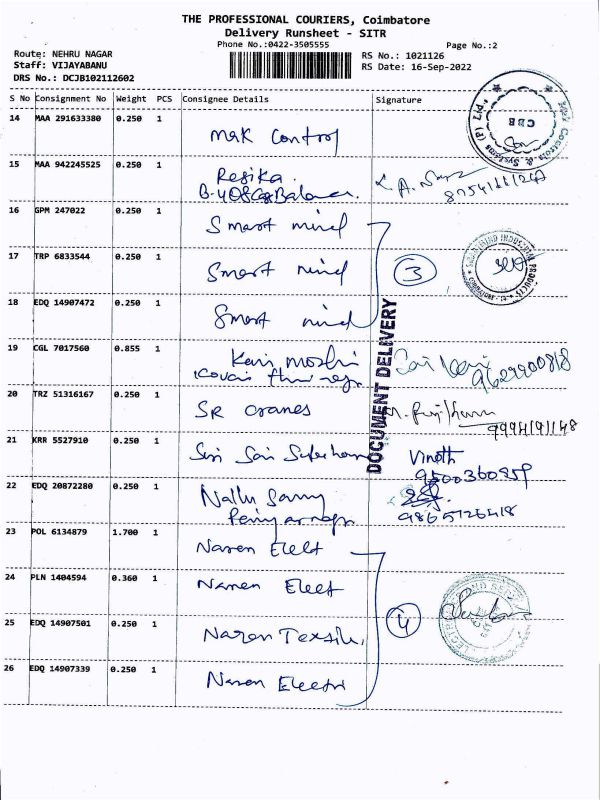 THE PROFESSIONAL COURIERS, Coimbatore
Delivery Runsheet - SITR
Phone No.:0422-3505555 Page No.:2
Route: NEHRU NAGAR RS No.: 1021126
Staff: VIJAYABANU RS Date: 16-Sep-2022
DRS No.: DCJB102112602
S No Consignment No Weight PCS Consignee Details Signature
14 MAA 291633380 0.250 1
Mak Control
15 MAA 942245525 0.250 1
Regika
16 GPM 247022 0.250 1
Smart mind
17 TRP 6833544 0.250 1
Smart mind
3
18 EDQ 14907472 0.250 1
Smart mind
DOCUMENT DELIVERY
19 CGL 7017560 0.855 1
9629900818
20 TRZ 51316167 0.250 1
SR cranes
9994191148
21 KRR 5527910 0.250 1
Vinoth
9500360859
22 EDQ 20872280 0.250 1
Nallu Samy
9865726418
23 POL 6134879 1.700 1
Naren Elect
24 PLN 1404594 0.360 1
Naren Elect
4
25 EDQ 14907501 0.250 1
Naren
26 EDQ 14907339 0.250 1
Naren Electri